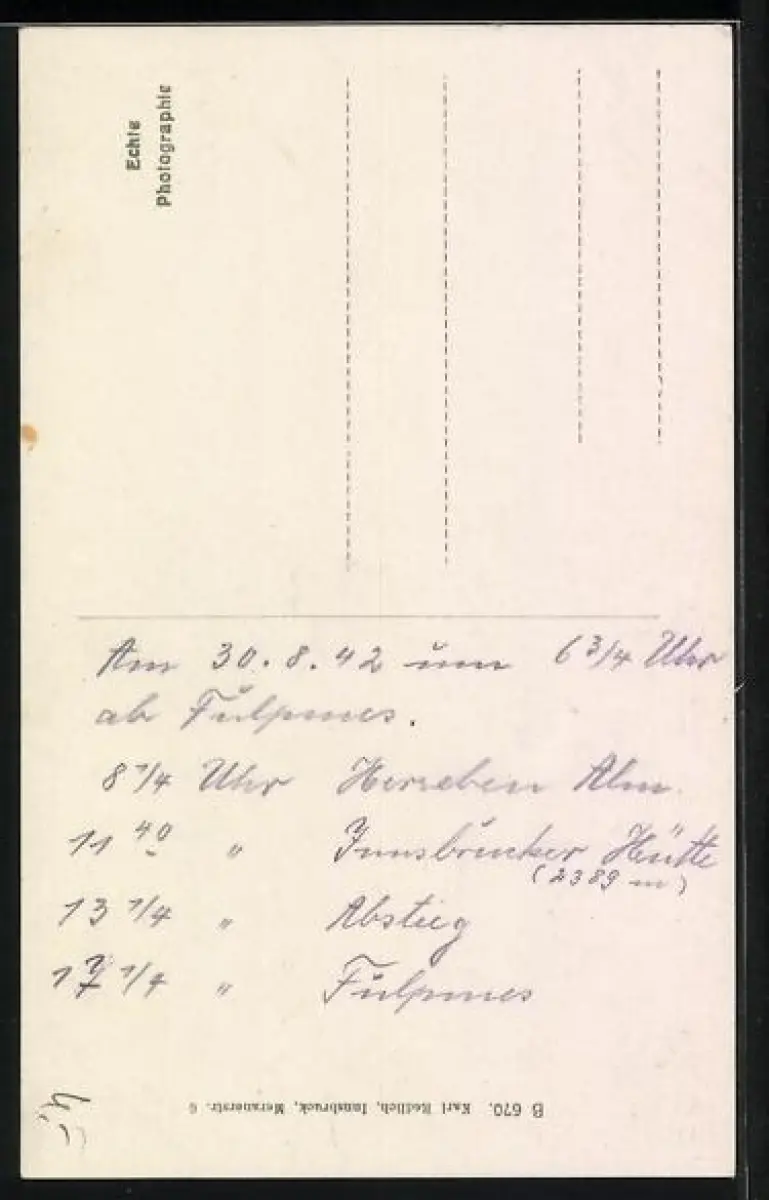 Echte
Photographie
Am 30.8.42 um 6 3/4 Uhr
ab Fulpmes.
8 1/4 Uhr Herzeben Alm.
11 40 " Innsbrucker Hütte
(2389 m)
13 1/4 " Abstieg
17 1/4 " Fulpmes
B 670. Karl Redlich, Innsbruck, Meranerstr. 6